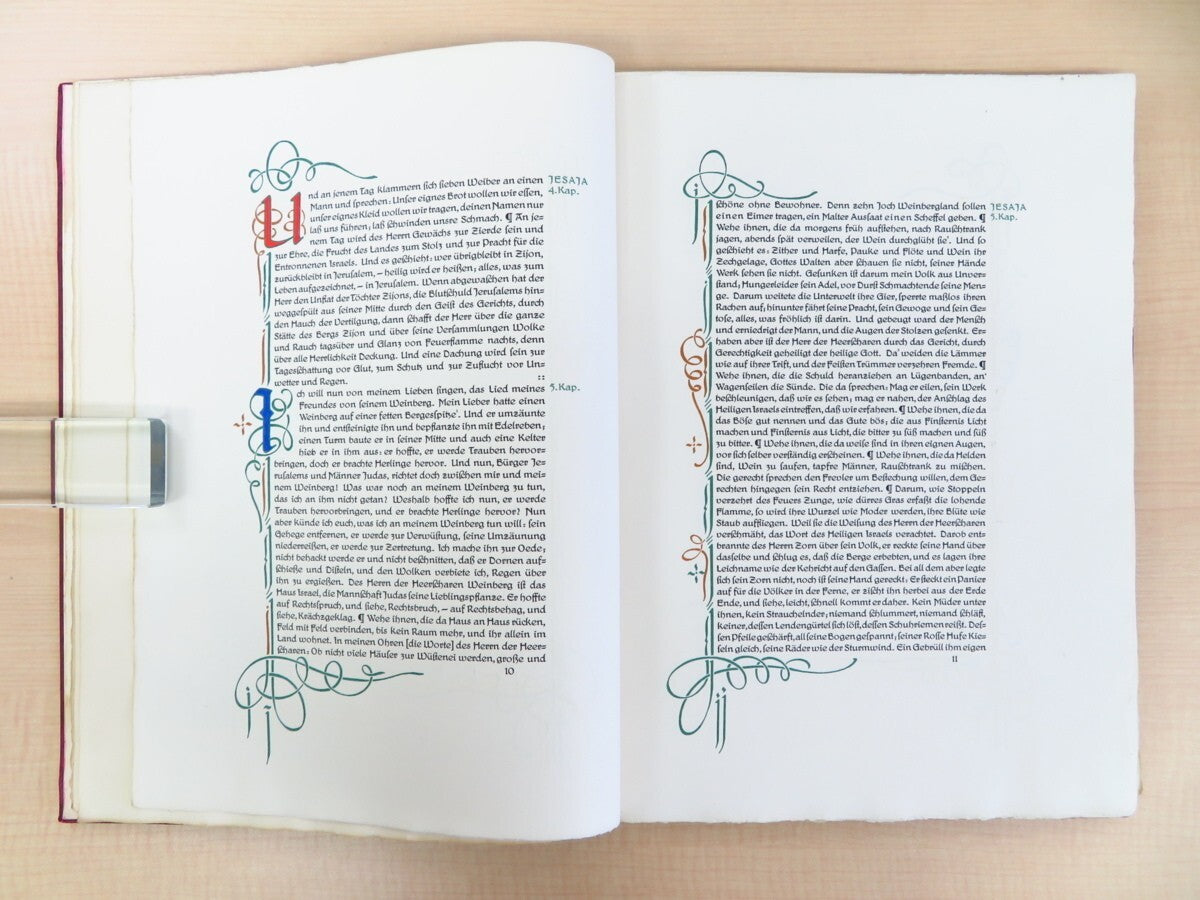 JESAJA
4. Kap.
Und an jenem Tag klammern sich sieben Weiber an einen
Mann und sprechen: Unser eignes Brot wollen wir essen,
unser eignes Kleid wollen wir tragen, deinen Namen nur
laß uns führen; laß schwinden unsre Schmach. ¶ An je=
nem Tag wird des Herrn Gewächs zur Zierde sein und
zur Ehre, die Frucht des Landes zum Stolz und zur Pracht für die
Entronnenen Israels. Und es geschieht: wer übrigbleibt in Zijon,
zurückbleibt in Jerusalem, – heilig wird er heißen; alles, was zum
Leben aufgezeichnet, – in Jerusalem. Wenn abgewaschen hat der
Herr den Unflat der Töchter Zijons, die Blutschuld Jerusalems hin=
weggespült aus seiner Mitte durch den Geist des Gerichts, durch
den Hauch der Vertilgung, dann schafft der Herr über die ganze
Stätte des Bergs Zijon und über seine Versammlungen Wolke
und Rauch tagsüber und Glanz von Feuerflamme nachts, denn
über alle Herrlichkeit Deckung. Und eine Dachung wird sein zur
Tagesschattung vor Glut, zum Schutz und zur Zuflucht vor Un=
wetter und Regen. ::
5. Kap.
Ich will nun von meinem Lieben singen, das Lied meines
Freundes von seinem Weinberg. Mein Lieber hatte einen
Weinberg auf einer fetten Bergesspitze'. Und er umzäunte
ihn und entsteinigte ihn und bepflanzte ihn mit Edelreben;
einen Turm baute er in seiner Mitte und auch eine Kelter
hieb er in ihm aus: er hoffte, er werde Trauben hervor=
bringen, doch er brachte Herlinge hervor. Und nun, Bürger Je=
rusalems und Männer Judas, richtet doch zwischen mir und mei=
nem Weinberg! Was war noch an meinem Weinberg zu tun,
das ich an ihm nicht getan? Weshalb hoffte ich nun, er werde
Trauben hervorbringen, und er brachte Herlinge hervor? Nun
aber künde ich euch, was ich an meinem Weinberg tun will: sein
Gehege entfernen, er werde zur Verwüstung, seine Umzäunung
niederreißen, er werde zur Zertretung. Ich mache ihn zur Oede;
nicht behackt werde er und nicht beschnitten, daß er Dornen auf=
schieße und Disteln, und den Wolken verbiete ich, Regen über
ihn zu ergießen. Des Herrn der Heerscharen Weinberg ist das
Haus Israel, die Mannschaft Judas seine Lieblingspflanze. Er hoffte
auf Rechtsspruch, und siehe, Rechtsbruch, – auf Rechtsbehag, und
siehe, Krächzgeklag. ¶ Wehe ihnen, die da Haus an Haus rücken,
Feld mit Feld verbinden, bis kein Raum mehr, und ihr allein im
Land wohnet. In meinen Ohren [die Worte] des Herrn der Heer=
scharen: Ob nicht viele Häuser zur Wüstenei werden, große und
10
JESAJA
5. Kap.
schöne ohne Bewohner. Denn zehn Joch Weinbergland sollen
einen Eimer tragen, ein Malter Aussaat einen Scheffel geben. ¶
Wehe ihnen, die da morgens früh aufstehen, nach Rauschtrank
jagen, abends spät verweilen, der Wein durchglüht sie'. Und so
geschieht es: Zither und Harfe, Pauke und Flöte und Wein ihr
Zechgelage, Gottes Walten aber schauen sie nicht, seiner Hände
Werk sehen sie nicht. Gesunken ist darum mein Volk aus Unver=
stand; Hungerleider sein Adel, vor Durst Schmachtende seine Men=
ge. Darum weitete die Unterwelt ihre Gier, sperrte maßlos ihren
Rachen auf; hinunter fährt seine Pracht, sein Gewoge und sein Ge=
tose, alles, was fröhlich ist darin. Und gebeugt ward der Mensch
und erniedrigt der Mann, und die Augen der Stolzen gesenkt. Er=
haben aber ist der Herr der Heerscharen durch das Gericht, durch
Gerechtigkeit geheiligt der heilige Gott. Da' weiden die Lämmer
wie auf ihrer Trift, und der Feisten Trümmer verzehren Fremde. ¶
Wehe ihnen, die die Schuld heranziehen an Lügenbanden, an'
Wagenseilen die Sünde. Die da sprechen: Mag er eilen, sein Werk
beschleunigen, daß wir es sehen; mag er nahen, der Anschlag des
Heiligen Israels eintreffen, daß wir erfahren. ¶ Wehe ihnen, die da
das Böse gut nennen und das Gute bös; die aus Finsternis Licht
machen und Finsternis aus Licht, die bitter zu süß machen und süß
zu bitter. ¶ Wehe ihnen, die da weise sind in ihren eignen Augen,
vor sich selber verständig erscheinen. ¶ Wehe ihnen, die da Helden
sind, Wein zu saufen, tapfre Männer, Rauschtrank zu mischen.
Die gerecht sprechen den Frevler um Bestechung willen, dem Ge=
rechten hingegen sein Recht entziehen. ¶ Darum, wie Stoppeln
verzehrt des Feuers Zunge, wie dürres Gras erfaßt die lohende
Flamme, so wird ihre Wurzel wie Moder werden, ihre Blüte wie
Staub auffliegen. Weil sie die Weisung des Herrn der Heerscharen
verschmäht, das Wort des Heiligen Israels verachtet. Darob ent=
brannte des Herrn Zorn über sein Volk, er reckte seine Hand über
dasselbe und schlug es, daß die Berge erbebten, und es lagen ihre
Leichname wie der Kehricht auf den Gassen. Bei all dem aber legte
sich sein Zorn nicht, noch ist seine Hand gereckt: Er steckt ein Panier
auf für die Völker in der Ferne, er zischt ihn herbei aus der Erde
Ende, und siehe, leicht, schnell kommt er daher. Kein Müder unter
ihnen, kein Strauchelnder; niemand schlummert, niemand schläft,
Keiner, dessen Lendengürtel sich löst, dessen Schuhriemen reißt. Des=
sen Pfeile geschärft, all seine Bogen gespannt; seiner Rosse Hufe Kie=
seln gleich, seine Räder wie der Sturmwind. Ein Gebrüll ihm eigen
11